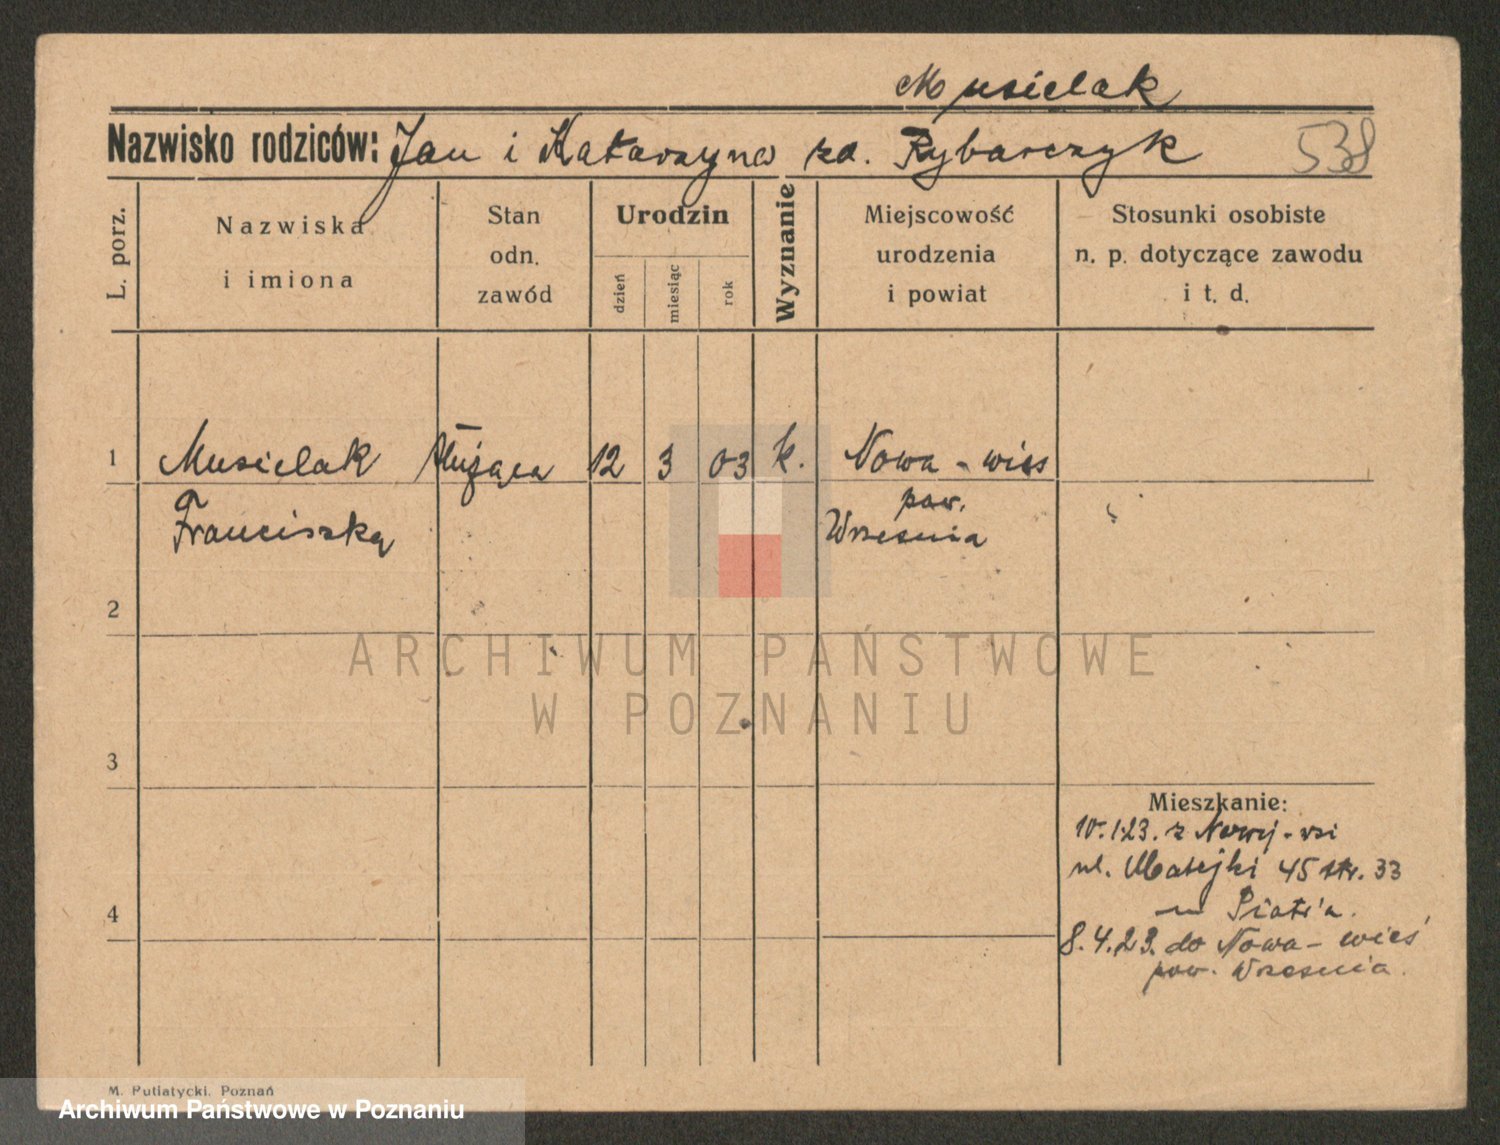 Musielak
Nazwisko rodziców: Jan i Katarzyna zd. Rybarczyk 538
L. porz.
Nazwiska
i imiona
Stan
odn.
zawód
Urodzin
dzień
miesiąc
rok
Wyznanie
Miejscowość
urodzenia
i powiat
Stosunki osobiste
n. p. dotyczące zawodu
i t. d.
1 Musielak służąca 12 3 03 k. Nowa-wies
Franciszka
pow.
Wrzesnia
2
3
4
Mieszkanie:
10.1.23. z Nowej-wsi
ul. Matejki 45 str. 33
8.4.23. do Nowa-wieś
pow. Wrzesnia.
M. Putiatycki, Poznań
ARCHIWUM PAŃSTWOWE
W POZNANIU
Archiwum Państwowe w Poznaniu